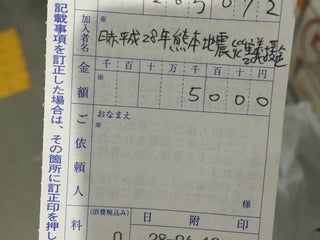 285072
加入者名
※
日赤平成28年熊本地震災害義援
金額
千百十万千百十円
5000
ご依頼人
※
おなまえ
様
料
(消費税込み)
0
日附印
28-04-
記載事項を訂正した場合は、その箇所に訂正印を押し